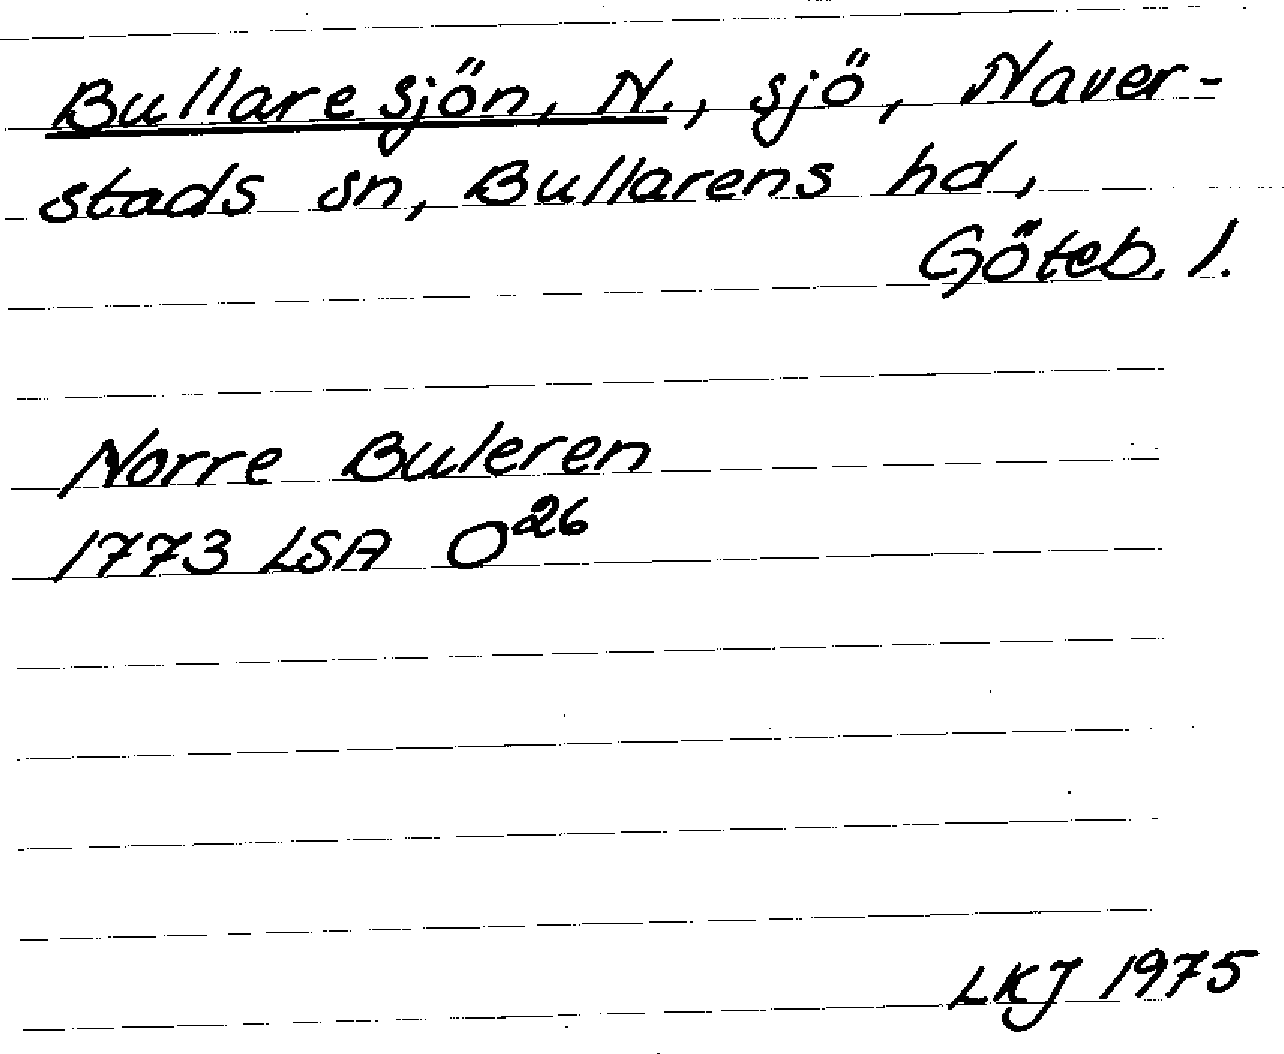 Bullaresjön, N., sjö, Naver-
stads sn, Bullarens hd,
Göteb. l.
Norre Buleren
1773 LSA O26
LKJ 1975